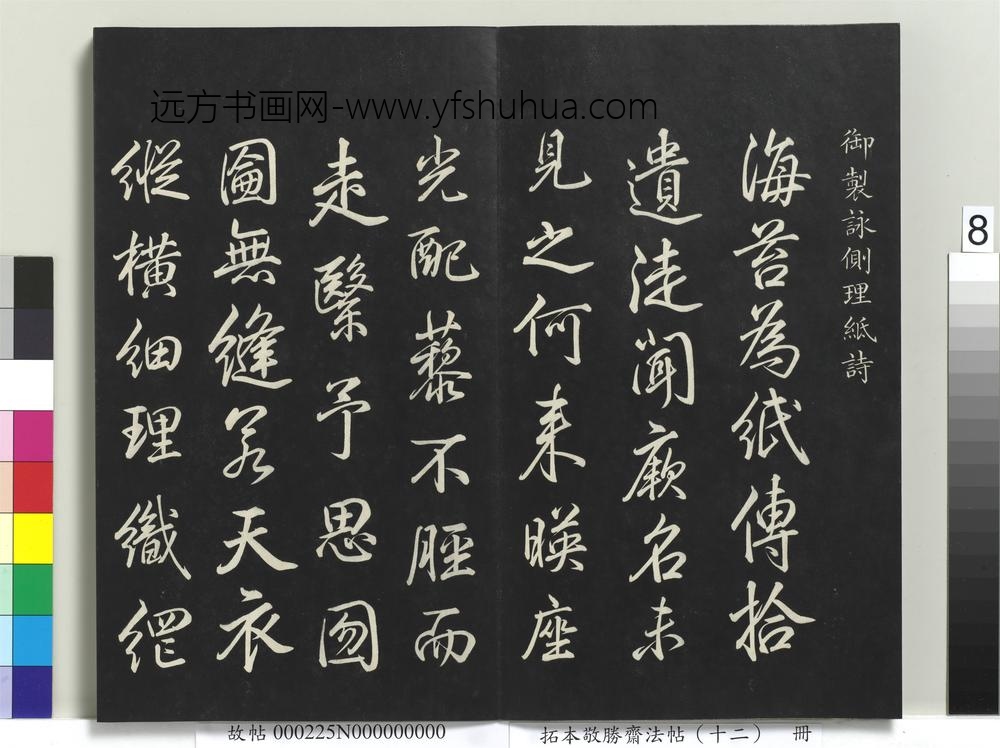 远方书画网-www.yfshuhua.com
御製詠側理紙詩
海苔為紙傳拾
遺徒聞厥名未
見之何来暎座
光配藜不脛而
走繄予思囫
圇無縫若天衣
縱橫細理織網
8
故帖 000225N000000000
拓本敬勝齋法帖(十二) 冊